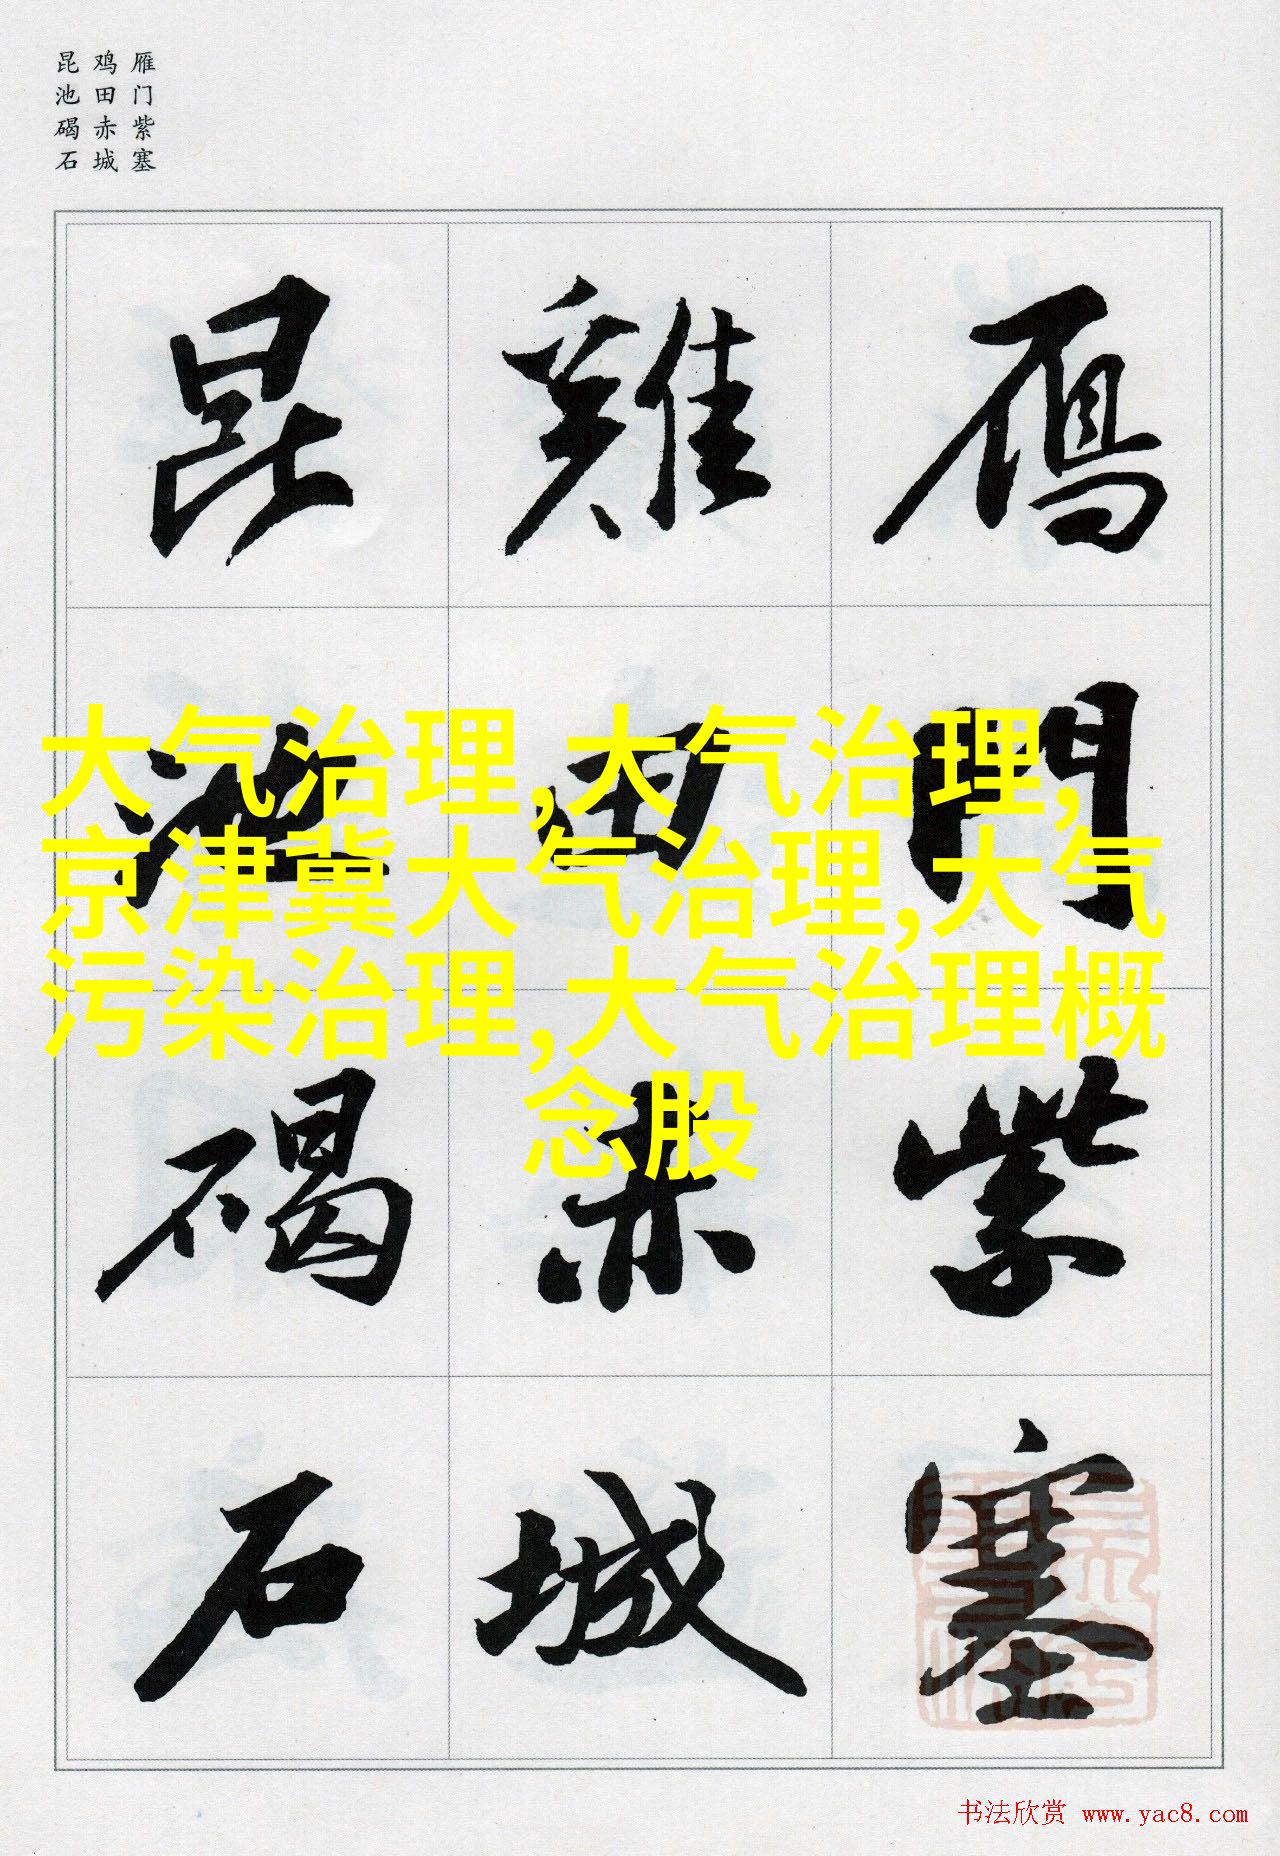 雁门紫塞
鸡田赤城
昆池碣石
鴈門紫塞
雞田赤城
昆池碣石
大气治理,大气治理,
京津冀大气治理,大气
污染治理,大气治理概
念股
书法欣赏 www.yac8.com